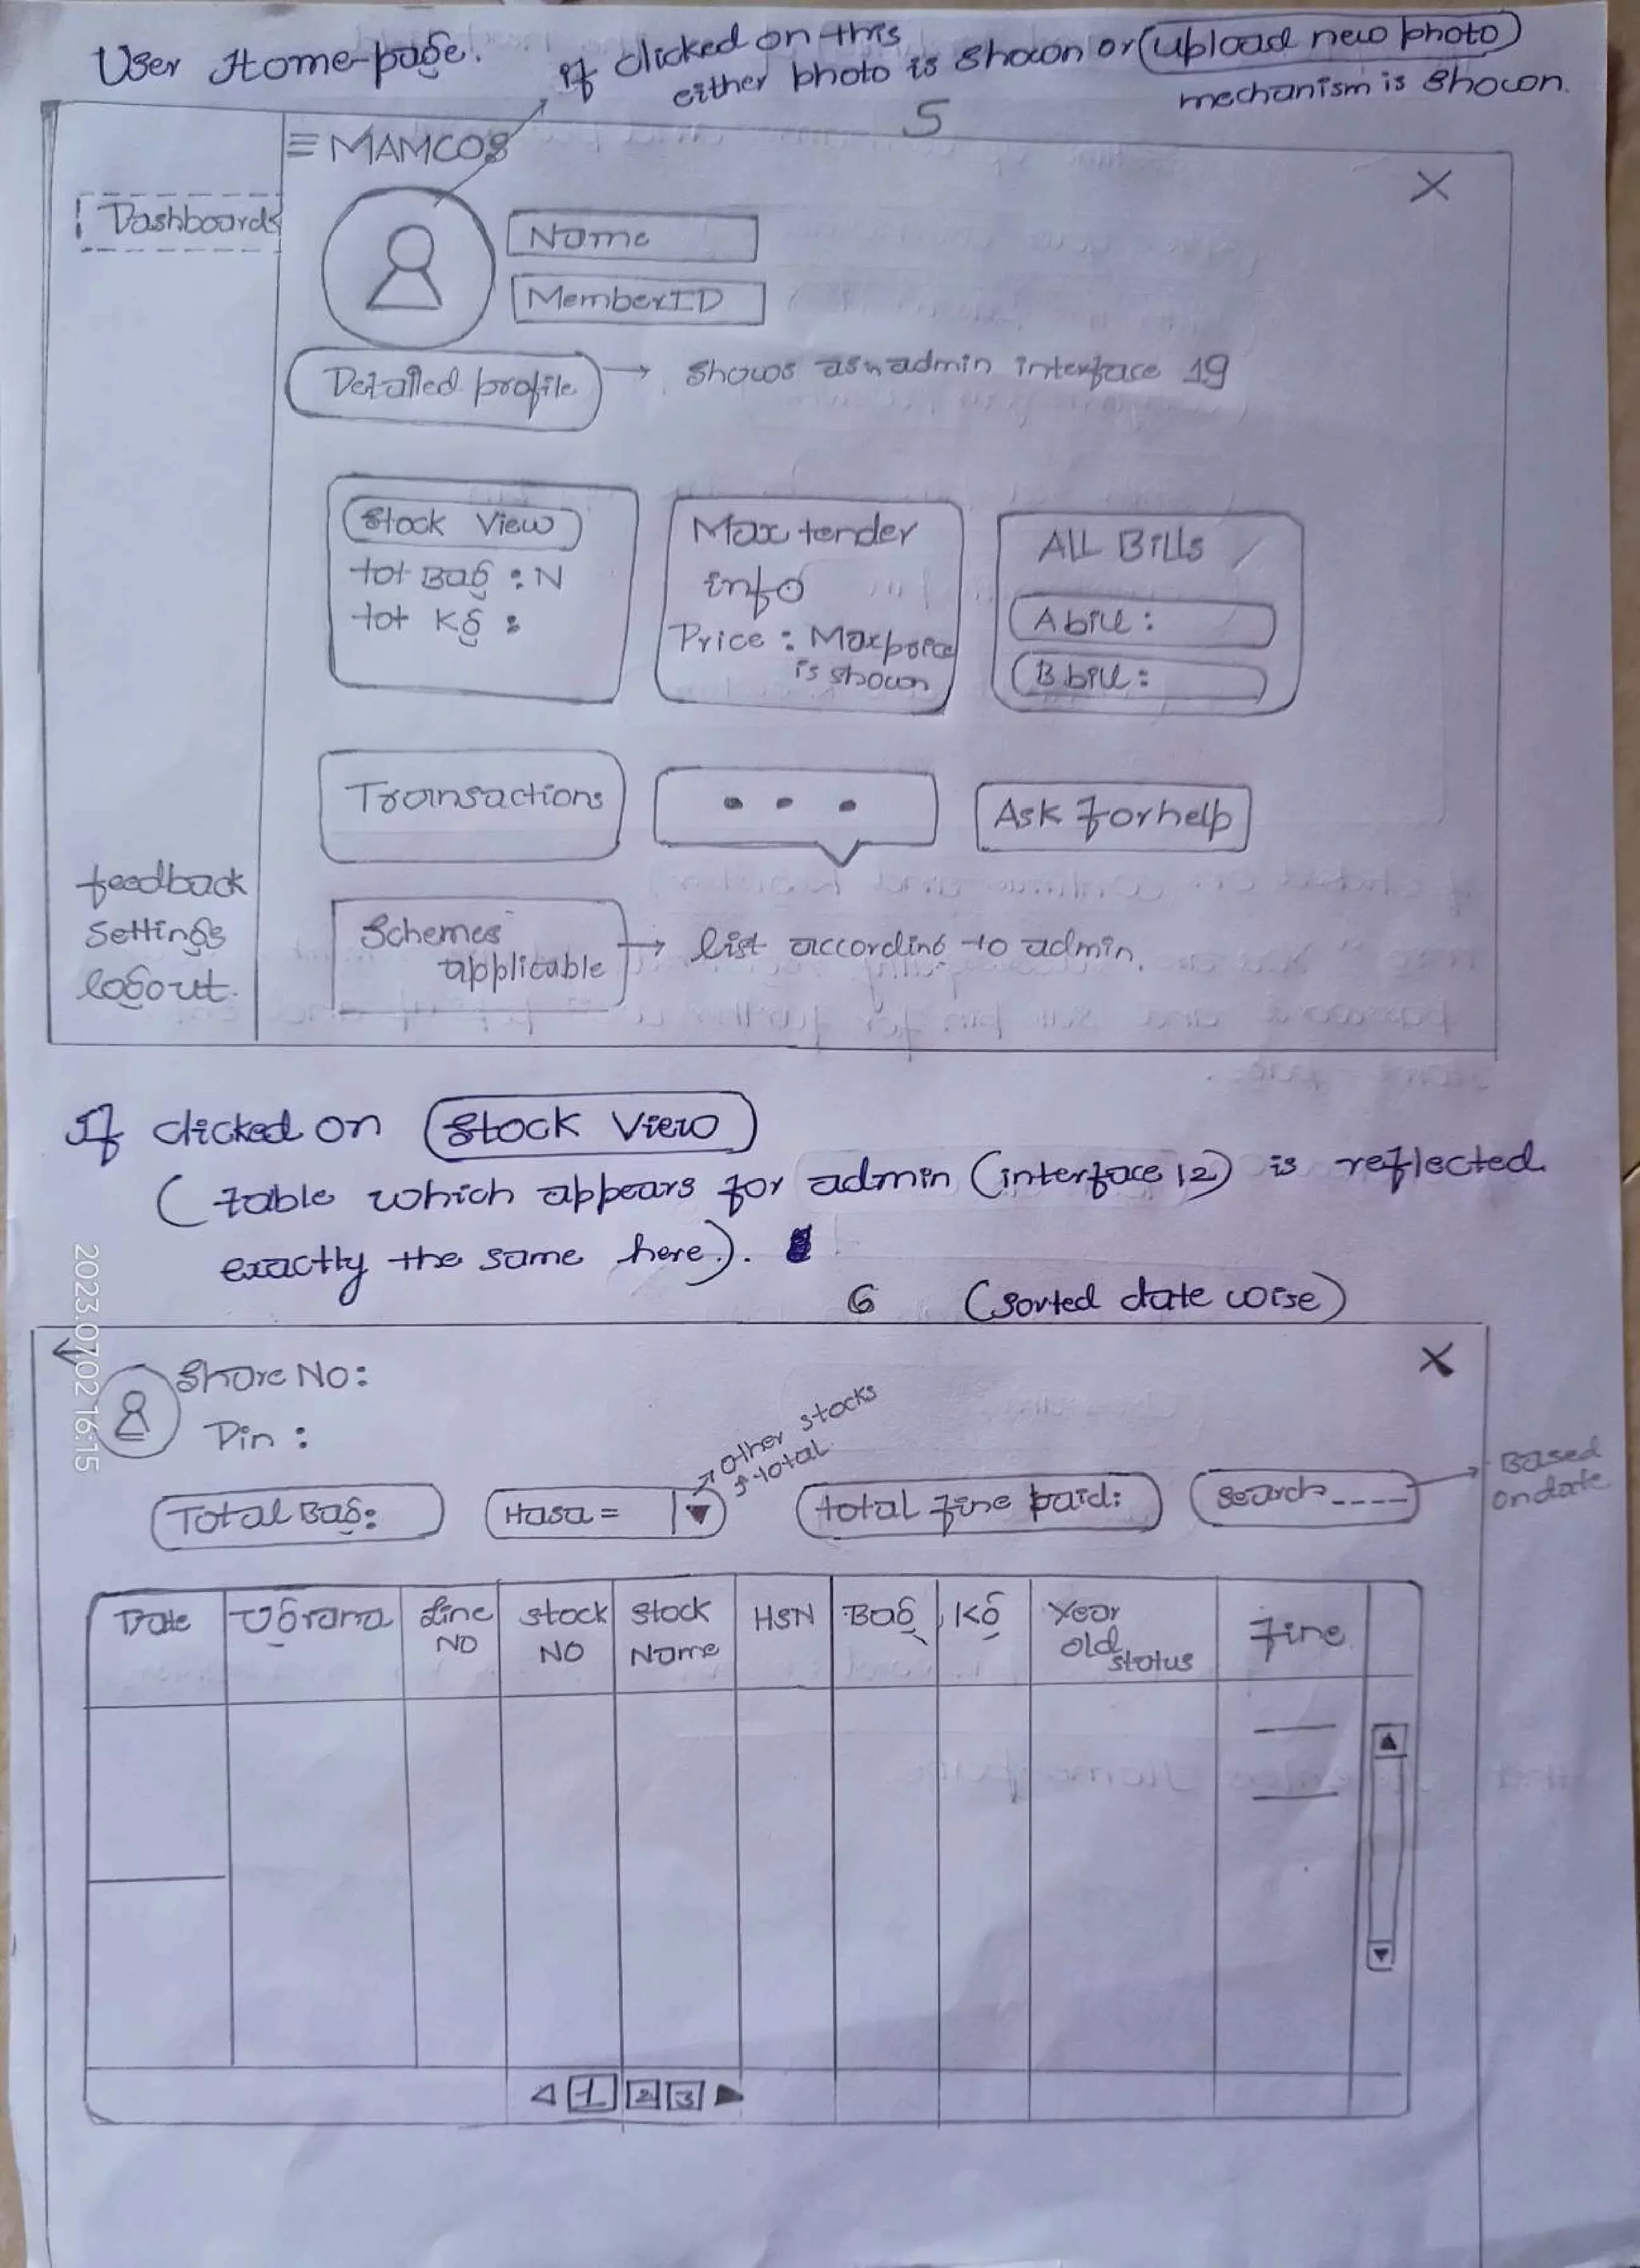 User Home-page.
If clicked on this
either photo is shown or upload new photo
mechanism is shown.
5
≡ MAMCOS
X
Dashboard
Name
MemberID
Detailed profile → shows as in admin interface 19
Stock View
tot Bag : N
tot Kg :
Max tender
info
Price : Maxprice
is shown
ALL Bills
A bill :
B bill :
Transactions
• • •
Ask for help
feedback
settings
logout.
Schemes
applicable → list according to admin.
If clicked on Stock View
( table which appears for admin (interface 12) is reflected
exactly the same here.).
6 (sorted date wise)
←
X
Share No:
Pin :
other stocks
total
Total Bag:
Hasa =
total fine paid:
search ----
Based
on date
Date
Ugrana
Line
NO
Stock
NO
Stock
Name
HSN
Bag
Kg
Year
old
status
Fine
1 2 3
2023.07.02 16:15